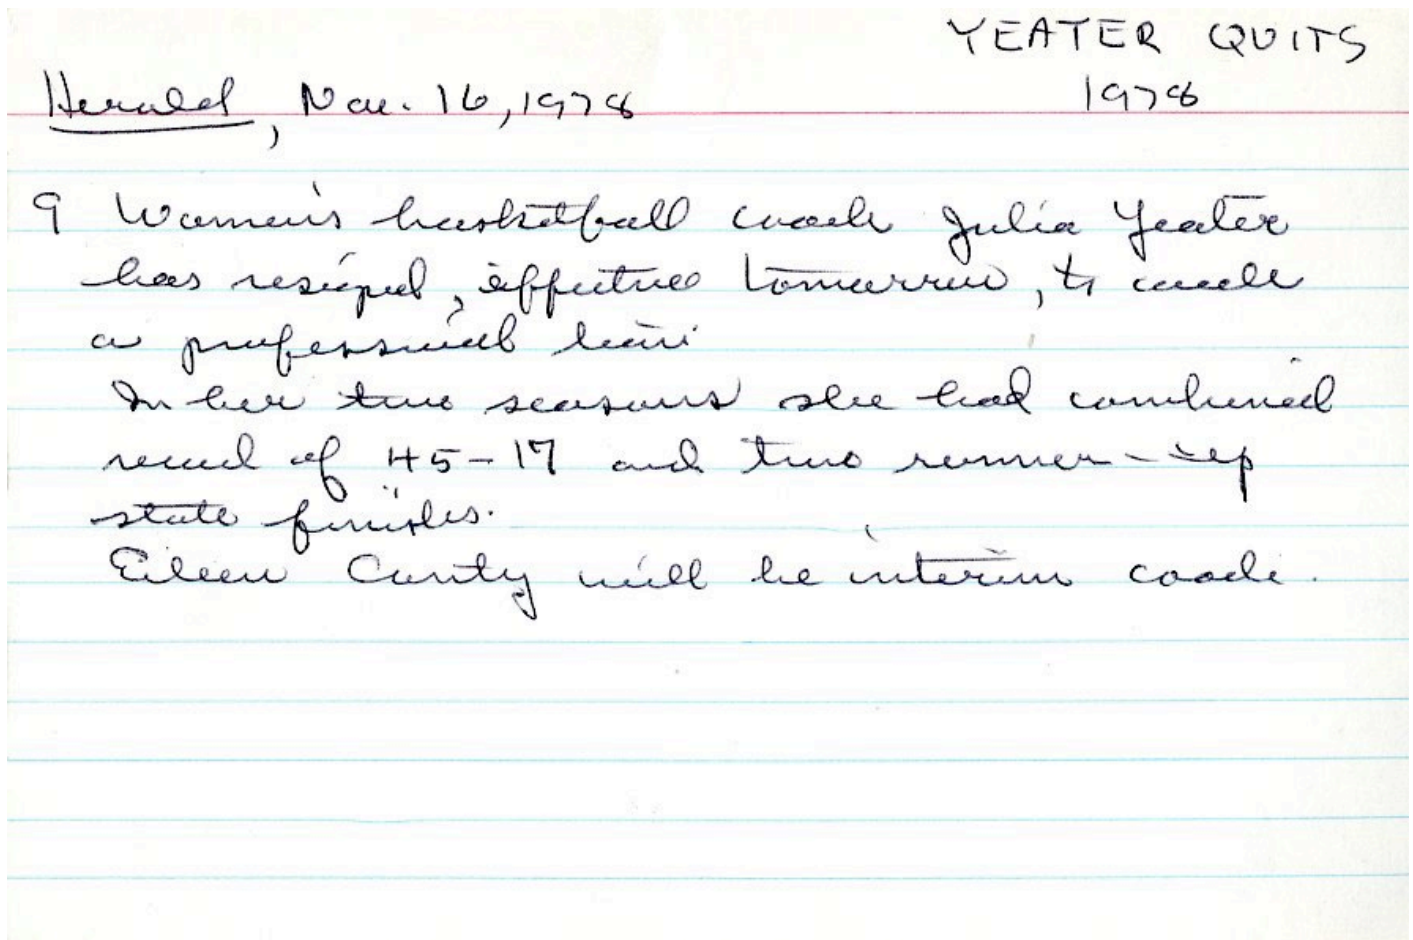 YEATER QUITS
1978
Herald, Nov. 16, 1978
9 Women's basketball coach Julia Yeater
has resigned, effective tomorrow, to coach
a professional team.
In her two seasons she had combined
record of 45-17 and two runner-up
state finishes.
Eileen Canty will be interim coach.